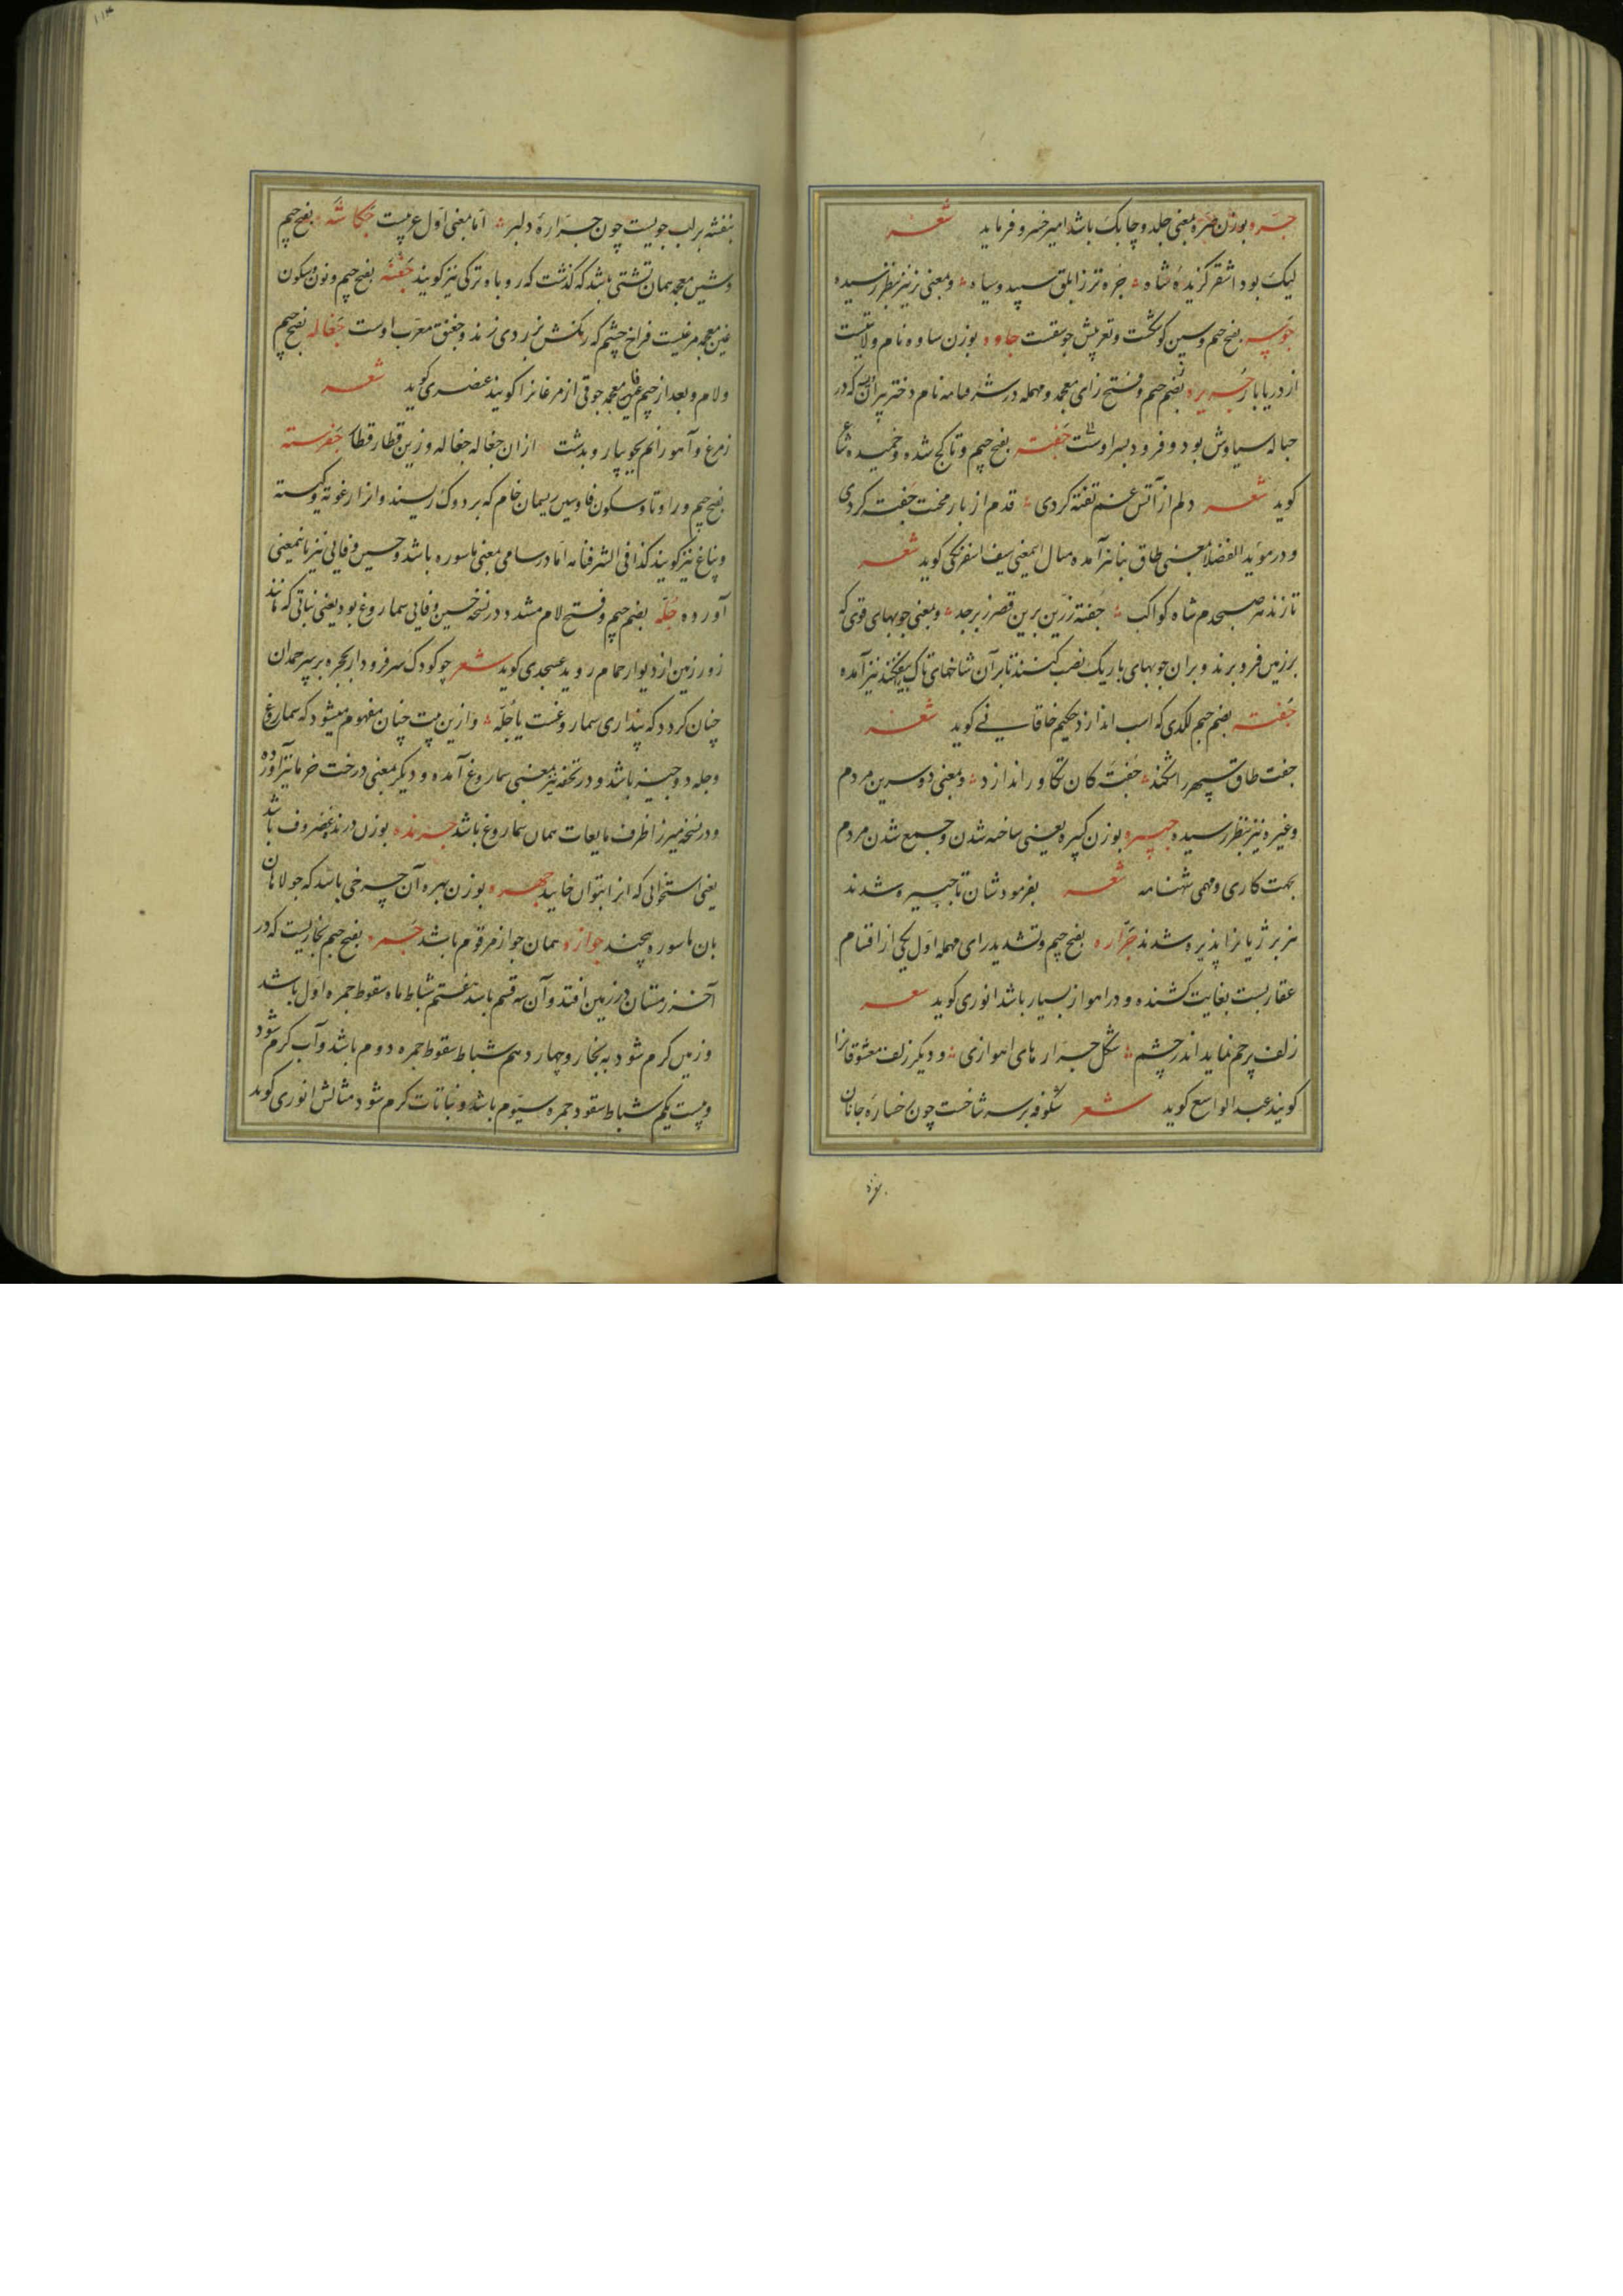 جره بوزن ضره بمعنی جلد و چابک باشد امیر خسرو فرماید شعر
لیک بود اشقر گزیدهٔ شاه جره تر ز ابلق سپید و سیاه و بمعنی نر نیز بنظر رسیده
جوسه بفتح جیم و سین کوشکست و تعریبش جوسقست جاوه بوزن ساوه نام ولایتیست
از دریابار جریره بضم جیم و فتح زای معجمه و مهمله در شرفنامه نام دختر پیران که در
حباله سیاوش بود و فرود پسر اوست جفته بفتح جیم و تا کج شده و خمیده شاعر
کوید شعر دلم از آتش غم تفته کردی قدم از بار محنت جفته کردی
و در مؤید الفضلا بمعنی طاق بنا نیز آمده مثال اینمعنی سیف اسفرنکی کوید شعر
تا زند صبحدم شاه کواکب جفته زرین برین قصر زبرجد و بمعنی چوبهای قوی که
بر زمین فرو برند و بران چوبهای باریک نصب کنند تا بر آن شاخهای تاک نیز آمده
جفته بضم جیم لکدی که اسب اندازد حکیم خاقانی کوید شعر
جفت طاق سپهر را شکند جفته کان تکاور اندازد و بمعنی دو سرین مردم
و غیره نیز بنظر رسیده جبیره بوزن کبیره یعنی ساخته شدن و جمع شدن مردم
بجهت کاری و مهمی شهنامه شعر بفرمودشان تا جبیره شدند
هزبر ژیانرا پذیره شدند جراره بفتح جیم و تشدید رای مهمله اول یکی از اقسام
عقاربست بغایت کشنده و در اهواز بسیار باشد انوری کوید شعر
زلف پرخم نماید اندر چشم شکل جراره های اهوازی و دیکر زلف معشوقانرا
کویند عبد الواسع کوید شعر شکوفه بر سر شاخست چون رخسارهٔ جانان
بنفشه
بنفشه بر لب جویست چون جرارهٔ دلبر اما بمعنی اول عربیست جکاشه بفتح جیم
و شین معجمه همان تشتی باشد که گذشت که روباه ترکی نیز کویند جغنه بفتح جیم و نون و سکون
غین معجمه مرغیست فراخ چشم که رنکش بزردی زند و جغنق معرب اوست جغاله بفتح جیم
و لام و بعد از جیم غین معجمه جوقی از مرغانرا کویند عنصری کوید شعر
ز مرغ و آهو رانم بجویبار و بدشت ازان جغاله جغاله وزین قطار قطار جغرسته
بفتح جیم و را و تا و سکون فا و سین ریسمان خام که بر دوک ریسند و انرا رغوته و کبسته
و پناغ نیز کویند کذا فی الشرفنامه اما در سامی بمعنی ماسوره باشد و حسین وفایی نیز باینمعنی
آورده جله بضم جیم و فتح لام مشدد در نسخه حسین وفایی سماروغ بود یعنی نباتی که مانند
زور زمین از دیوار حمام روید عسجدی کوید شعر چو کودک سر فرو دارد بحجره بر سر حمدان
چنان کردد که پنداری سماروغست یا جله و ازین بیت چنان مفهوم میشود که سماروغ
و جله دو چیز باشد و در تحفه نیز بمعنی سماروغ آمده و دیکر بمعنی درخت خرما نیز آورده
و در نسخه میرزا ظرف مایعات همان سماروغ باشد جرنده بوزن درنده غضروف باشد
یعنی استخوانی که انرا بتوان خایید جهره بوزن بهره آن چرخی باشد که جولاهان
بان ماسوره پیچند جوازه همان جواز مرقوم باشد جمره بفتح جیم بخاریست که در
آخر زمستان در زمین افتد و آن سه قسم باشد هفتم شباط ماه سقوط جمره اول باشد
و زمین کرم شود به بخار و چهاردهم شباط سقوط جمره دوم باشد و آب کرم شود
و بیست یکم شباط سقود جمره سیوم باشد و نباتات کرم شود مثالش انوری کوید